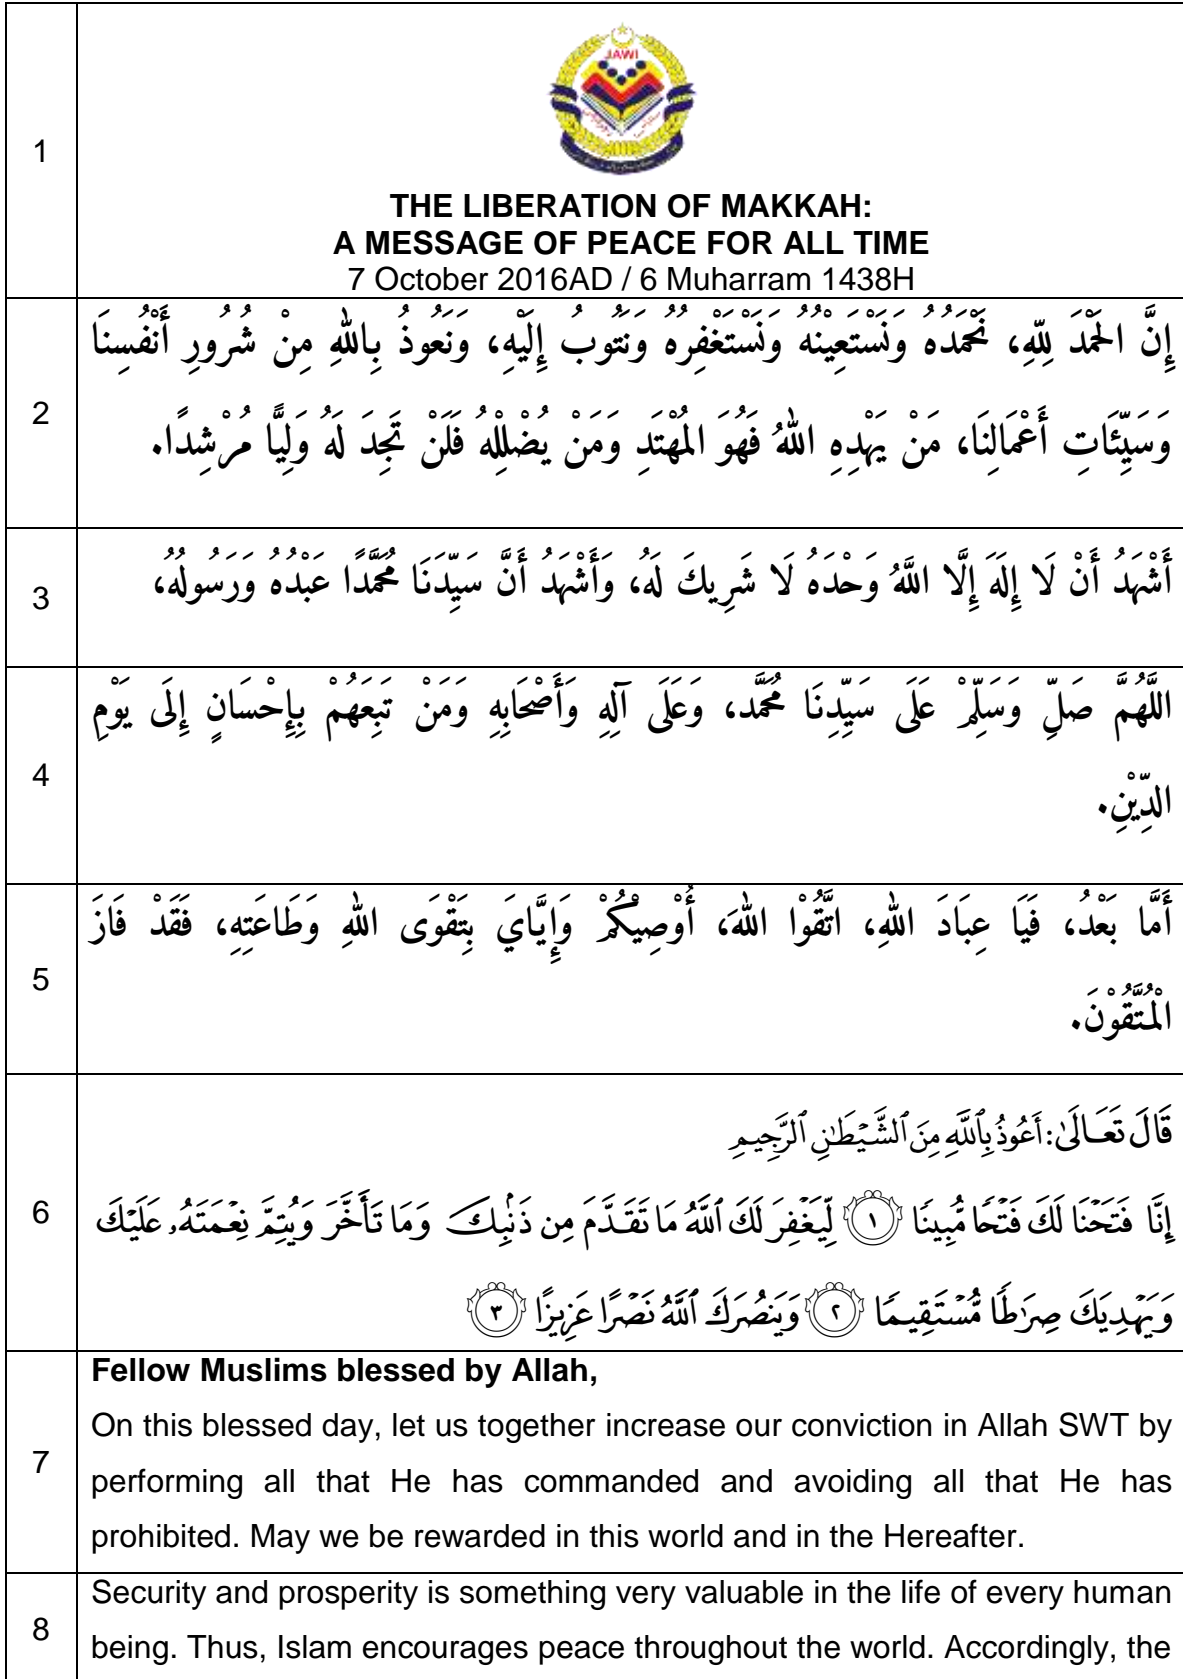 1
JAWI
THE LIBERATION OF MAKKAH:
A MESSAGE OF PEACE FOR ALL TIME
7 October 2016AD / 6 Muharram 1438H
2
إِنَّ الحَمْدَ لِلّهِ، نَحْمَدُهُ وَنَسْتَعِينُهُ وَنَسْتَغْفِرُه وَنَتُوبُ إِلَيْهِ، وَنَعُوذُ بِاللهِ مِنْ شُرُورِ أَنْفُسِنَا
وَسَيِّئَاتِ أَعْمَالِنَا، مَنْ يَهْدِهِ اللهُ فَهُوَ المُهْتَدِ وَمَنْ يُضْلِلْهُ فَلَنْ تَجِدَ لَهُ وَلِيًّا مُرْشِدًا.
3
أَشْهَدُ أَنْ لَا إِلَهَ إِلَّا اللَّهُ وَحْدَهُ لَا شَرِيكَ لَهُ، وَأَشْهَدُ أَنَّ سَيِّدَنَا مُحَمَّدًا عَبْدُهُ وَرَسُولُهُ،
4
اللَّهُمَّ صَلِّ وَسَلِّمْ عَلَى سَيِّدِنَا مُحَمَّد، وَعَلَى آلِهِ وَأَصْحَابِهِ وَمَنْ تَبِعَهُمْ بِإِحْسَانٍ إِلَى يَوْمِ
الدِّيْنِ.
5
أَمَّا بَعْدُ، فَيَا عِبَادَ اللهِ، اتَّقُوْا اللهَ، أُوْصِيْكُمْ وَإِيَّايَ بِتَقْوَى اللهِ وَطَاعَتِهِ، فَقَدْ فَازَ
الْمُتَّقُوْنَ.
6
قَالَ تَعَالَىٰ: أَعُوذُ بِٱللَّهِ مِنَ ٱلشَّيْطَٰنِ ٱلرَّجِيمِ
إِنَّا فَتَحْنَا لَكَ فَتْحًا مُّبِينًا ١ لِّيَغْفِرَ لَكَ ٱللَّهُ مَا تَقَدَّمَ مِن ذَنۢبِكَ وَمَا تَأَخَّرَ وَيُتِمَّ نِعْمَتَهُۥ عَلَيْكَ
وَيَهْدِيَكَ صِرَٰطًا مُّسْتَقِيمًا ٢ وَيَنصُرَكَ ٱللَّهُ نَصْرًا عَزِيزًا ٣
7
Fellow Muslims blessed by Allah,
On this blessed day, let us together increase our conviction in Allah SWT by
performing all that He has commanded and avoiding all that He has
prohibited. May we be rewarded in this world and in the Hereafter.
8
Security and prosperity is something very valuable in the life of every human
being. Thus, Islam encourages peace throughout the world. Accordingly, the